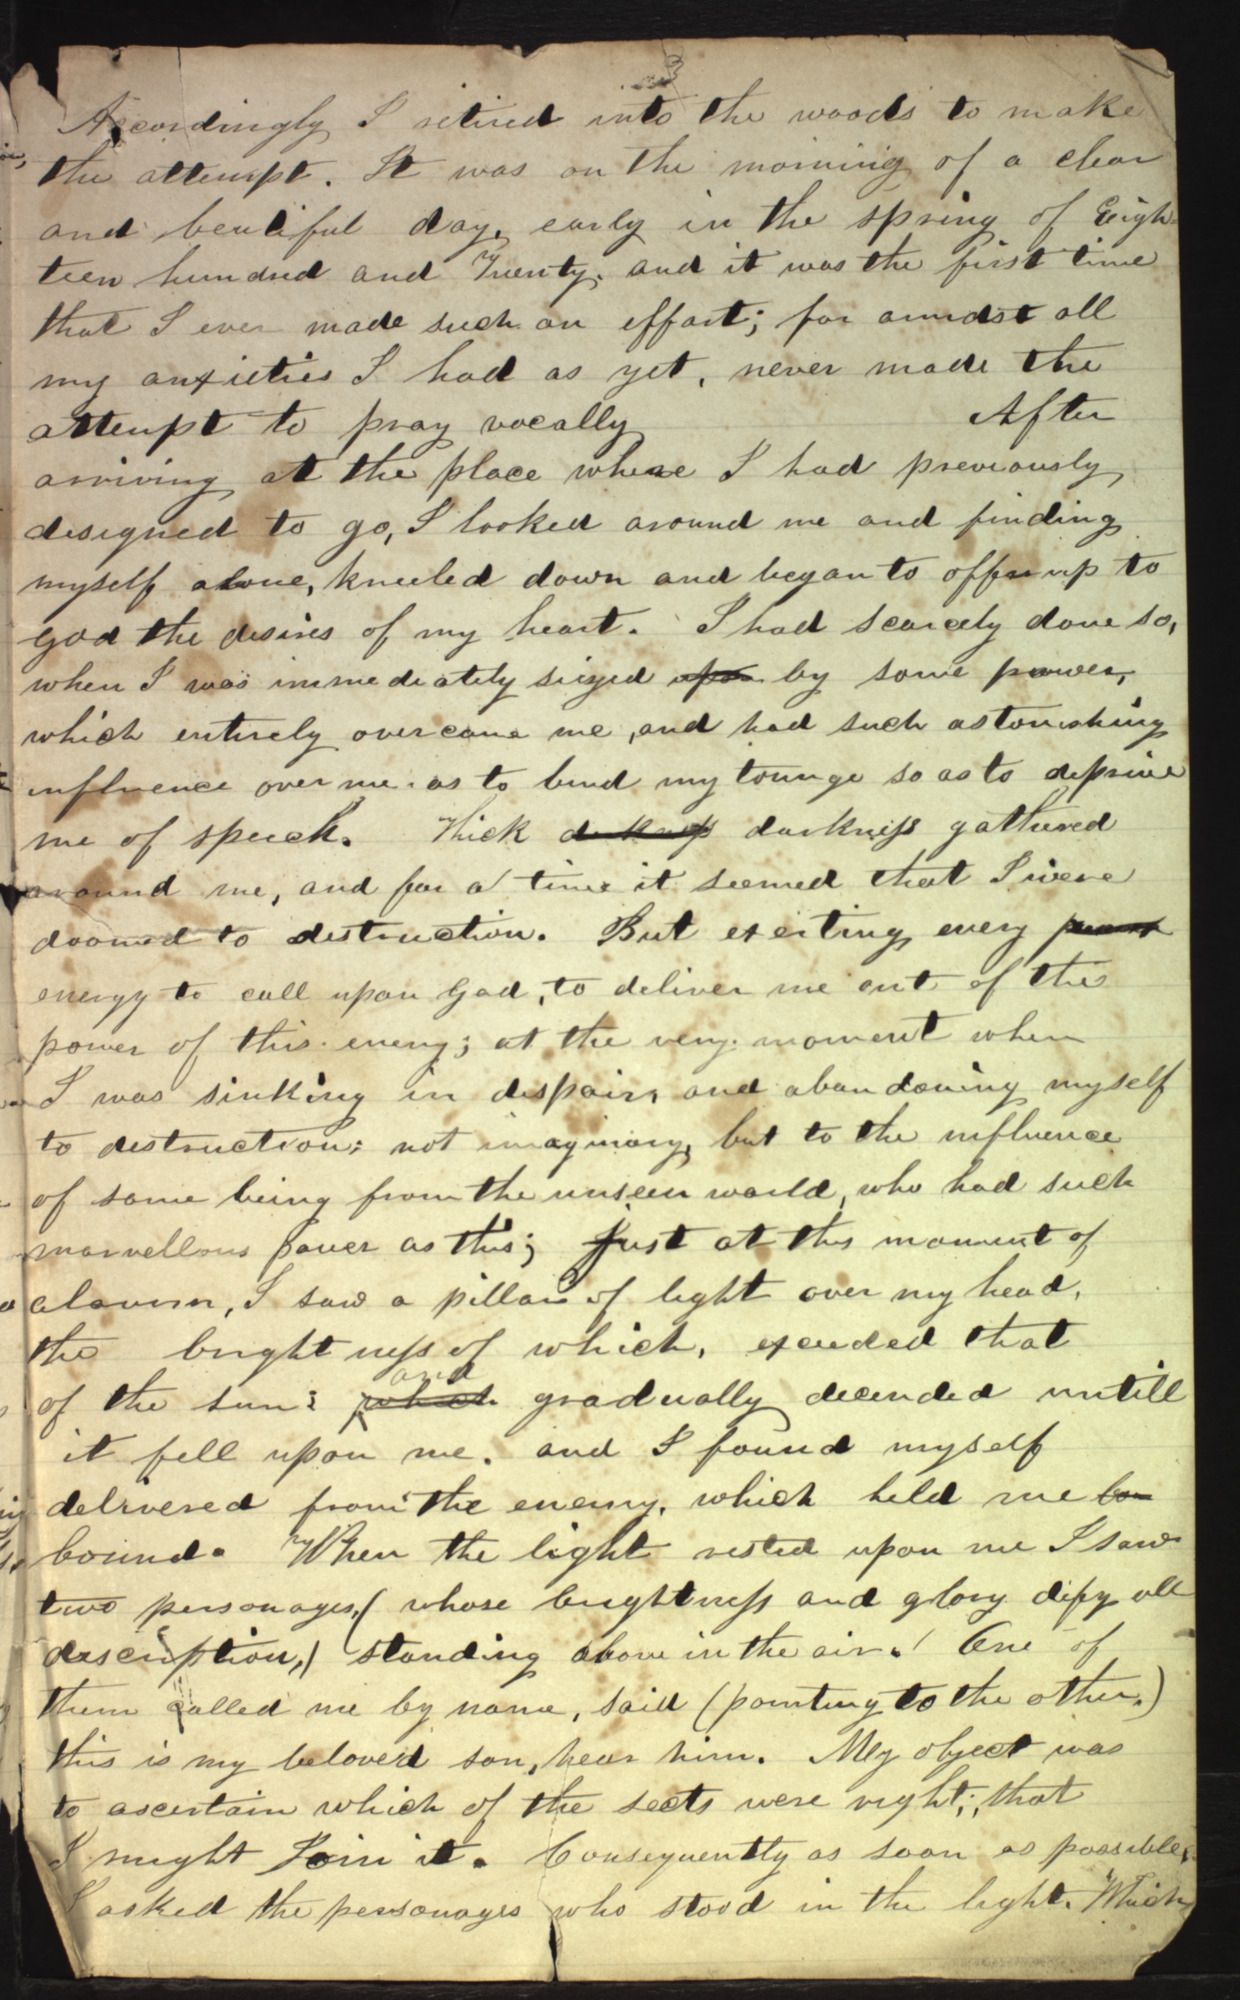 3
Accordingly I retired into the woods to make
the attempt. It was on the morning of a clear
and beautiful day, early in the spring of Eigh-
teen hundred and Twenty. and it was the first time
that I ever made such an effort; for amidst all
my anxieties I had as yet, never made the
attempt to pray vocally After
arriving at the place where I had previously
designed to go, I looked around me and finding
myself alone, kneeled down and began to offer up to
god the desires of my heart. I had scarcely done so,
when I was immediately siezed upon by some power,
which entirely overcame me, and had such astonishing
influence over me. as to bind my tounge so as to deprive
me of speech. Thick darkness darkness gathered
around me, and for a time it seemed that I were
doomed to destruction. But exerting every power
energy to call upon God, to deliver me out of the
power of this enemy; at the very moment when
I was sinking in despair, and abandoning myself
to destruction; not imaginary, but to the influence
of some being from the unseen world, who had such
marvellous power as this; just at this moment of
alarm, I saw a pillar of light over my head,
the brightness of which, exceeded that
and
of the sun: which gradually decended untill
it fell upon me. and I found myself
delivered from the enemy, which held me bou
bound. When the light rested upon me I saw
two personages, (whose brightness and glory defy all
description,) standing above in the air.! One of
them called me by name, said (pointing to the other.)
this is my beloved son, hear him. My object was
to ascertain which of the sects were right; that
I might Join it. Consequently as soon as possible,
I asked the personages who stood in the light. Which